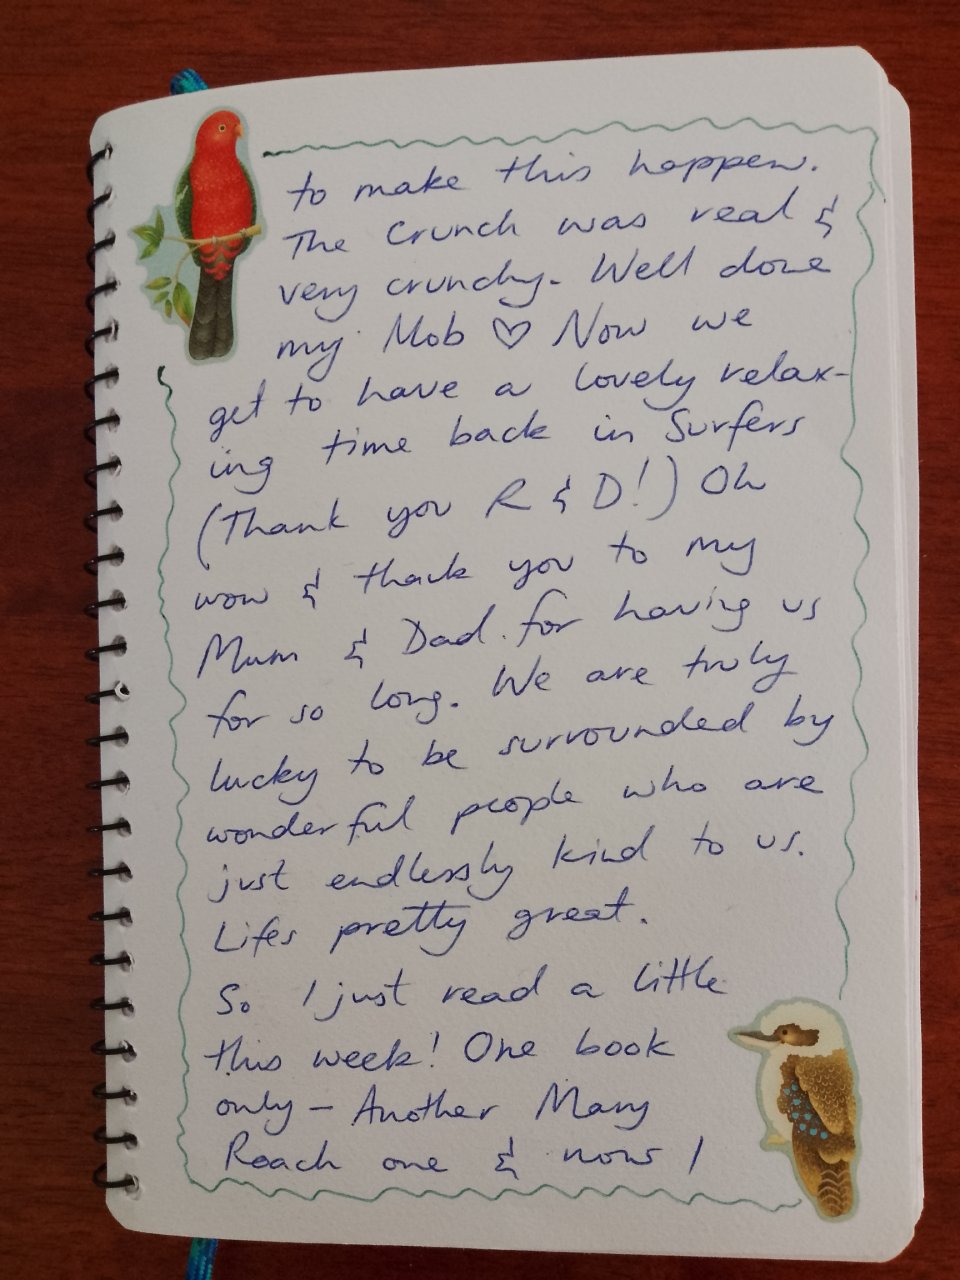 to make this happen.
The crunch was real &
very crunchy. Well done
my Mob ♡ Now we
get to have a lovely relax-
ing time back in Surfers
(Thank you R & D!) Oh
wow & thank you to my
Mum & Dad for having us
for so long. We are truly
lucky to be surrounded by
wonderful people who are
just endlessly kind to us.
Lifes pretty great.
So I just read a little
this week! One book
only - Another Mary
Roach one & now I